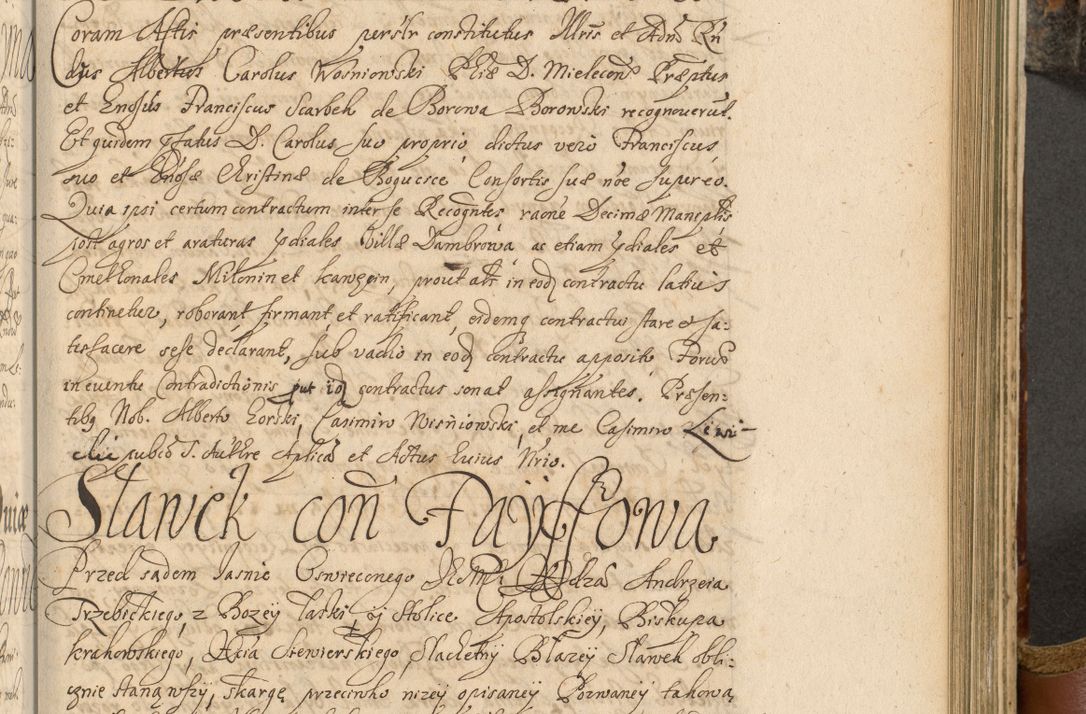 Coram Actis præsentibus persłr constitutus Illris et Adm̄ Rn̄
dus Albertus Carolus Wosniowski Phiæ D. Mielecen̄ Præptus
et Gnosus Franciscus Scarbek de Borowa Borowski recognoverūt.
Et quidem pfatus D. Carolus suo proprio, dictus vero Franciscus,
suo et Gnosæ Christinæ de Bogucice Consortis suæ nōe super eo.
Quia ipsi certum contractum inter se Recogn̄tes raōne Decimæ Maniplis
post agros et araturas pdiales Villæ Dambrowa ac etiam pdiales et
Cmethonales Milonin et Kawzein, prout alt in eodȝ contractu latius
continetur, roborant, firmant, et ratificant, eidemq contractui stare et sa:
tisfacere sese declarant, sub vadio in eodȝ contractu apposito Forum
in eventu Contradictionis put idȝ contractus sonat assignantes. Præsen:
tibq Nob. Alberto Gorski, Casimiro Wisniowski, et me Casimiro
publco S. Authte Aplica et Actus huius Nrio.
Sławek con̄ Fayffrowa
Przed sądem Jasnie Oswieconego Andrzeia
Trzebickiego, z Bozey łaski, y Stolice Apostolskiey, Biskupa
Krakowskiego, Xcia Siewierskiego, Slachetny Błazey Sławek obli:
cznie stanąwszy, skargę przeciwko nizey opisaney Pozwaney takową